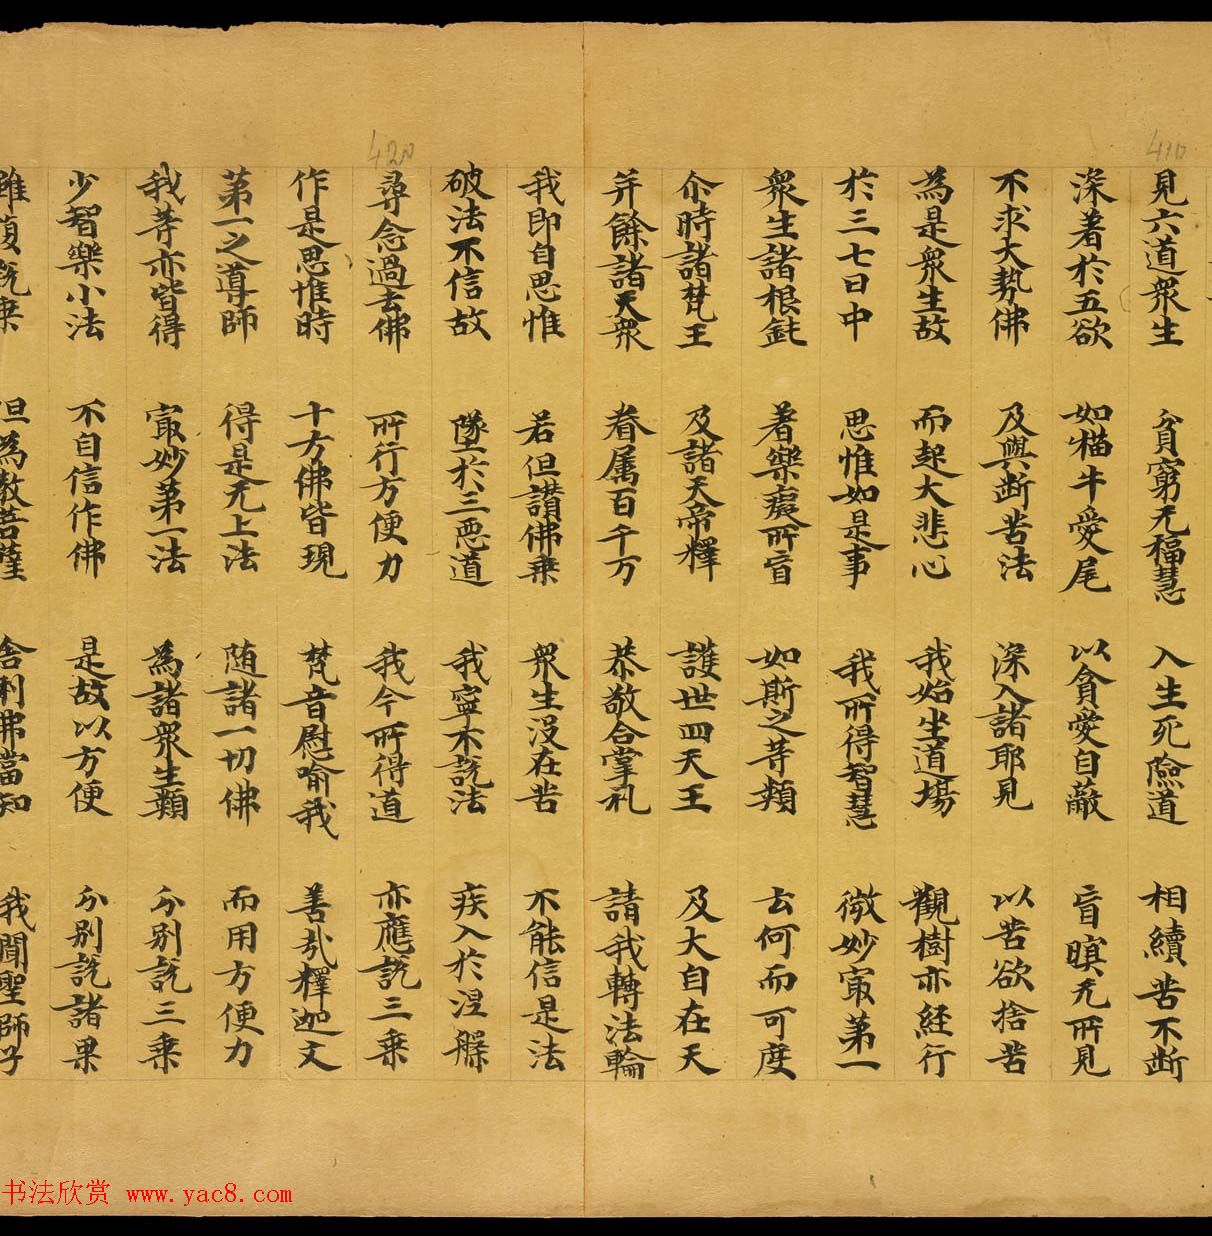 410
見六道衆生 貧窮无福慧 入生死險道 相續苦不断
深著於五欲 如猫牛愛尾 以貪愛自蔽 盲瞑无所見
不求大勢佛 及與断苦法 深入諸耶見 以苦欲捨苦
為是衆生故 而起大悲心 我始坐道場 觀樹亦経行
於三七日中 思惟如是事 我所得智慧 微妙冣第一
衆生諸根鈍 著樂癡所盲 如斯之等類 云何而可度
尒時諸梵王 及諸天帝釋 護世四天王 及大自在天
并餘諸天衆 眷属百千万 恭敬合掌礼 請我轉法輪
我即自思惟 若但讃佛乗 衆生没在苦 不能信是法
破法不信故 墜於三悪道 我寧不説法 疾入於涅槃
420
尋念過去佛 所行方便力 我今所得道 亦應説三乗
作是思惟時 十方佛皆現 梵音慰喻我 善哉釋迦文
第一之導師 得是无上法 随諸一切佛 而用方便力
我等亦皆得 冣妙第一法 為諸衆生類 分別説三乗
少智樂小法 不自信作佛 是故以方便 分別説諸果
雖復説乗 但為教菩薩 舎利佛當知 我聞聖師子
书法欣赏 www.yac8.com